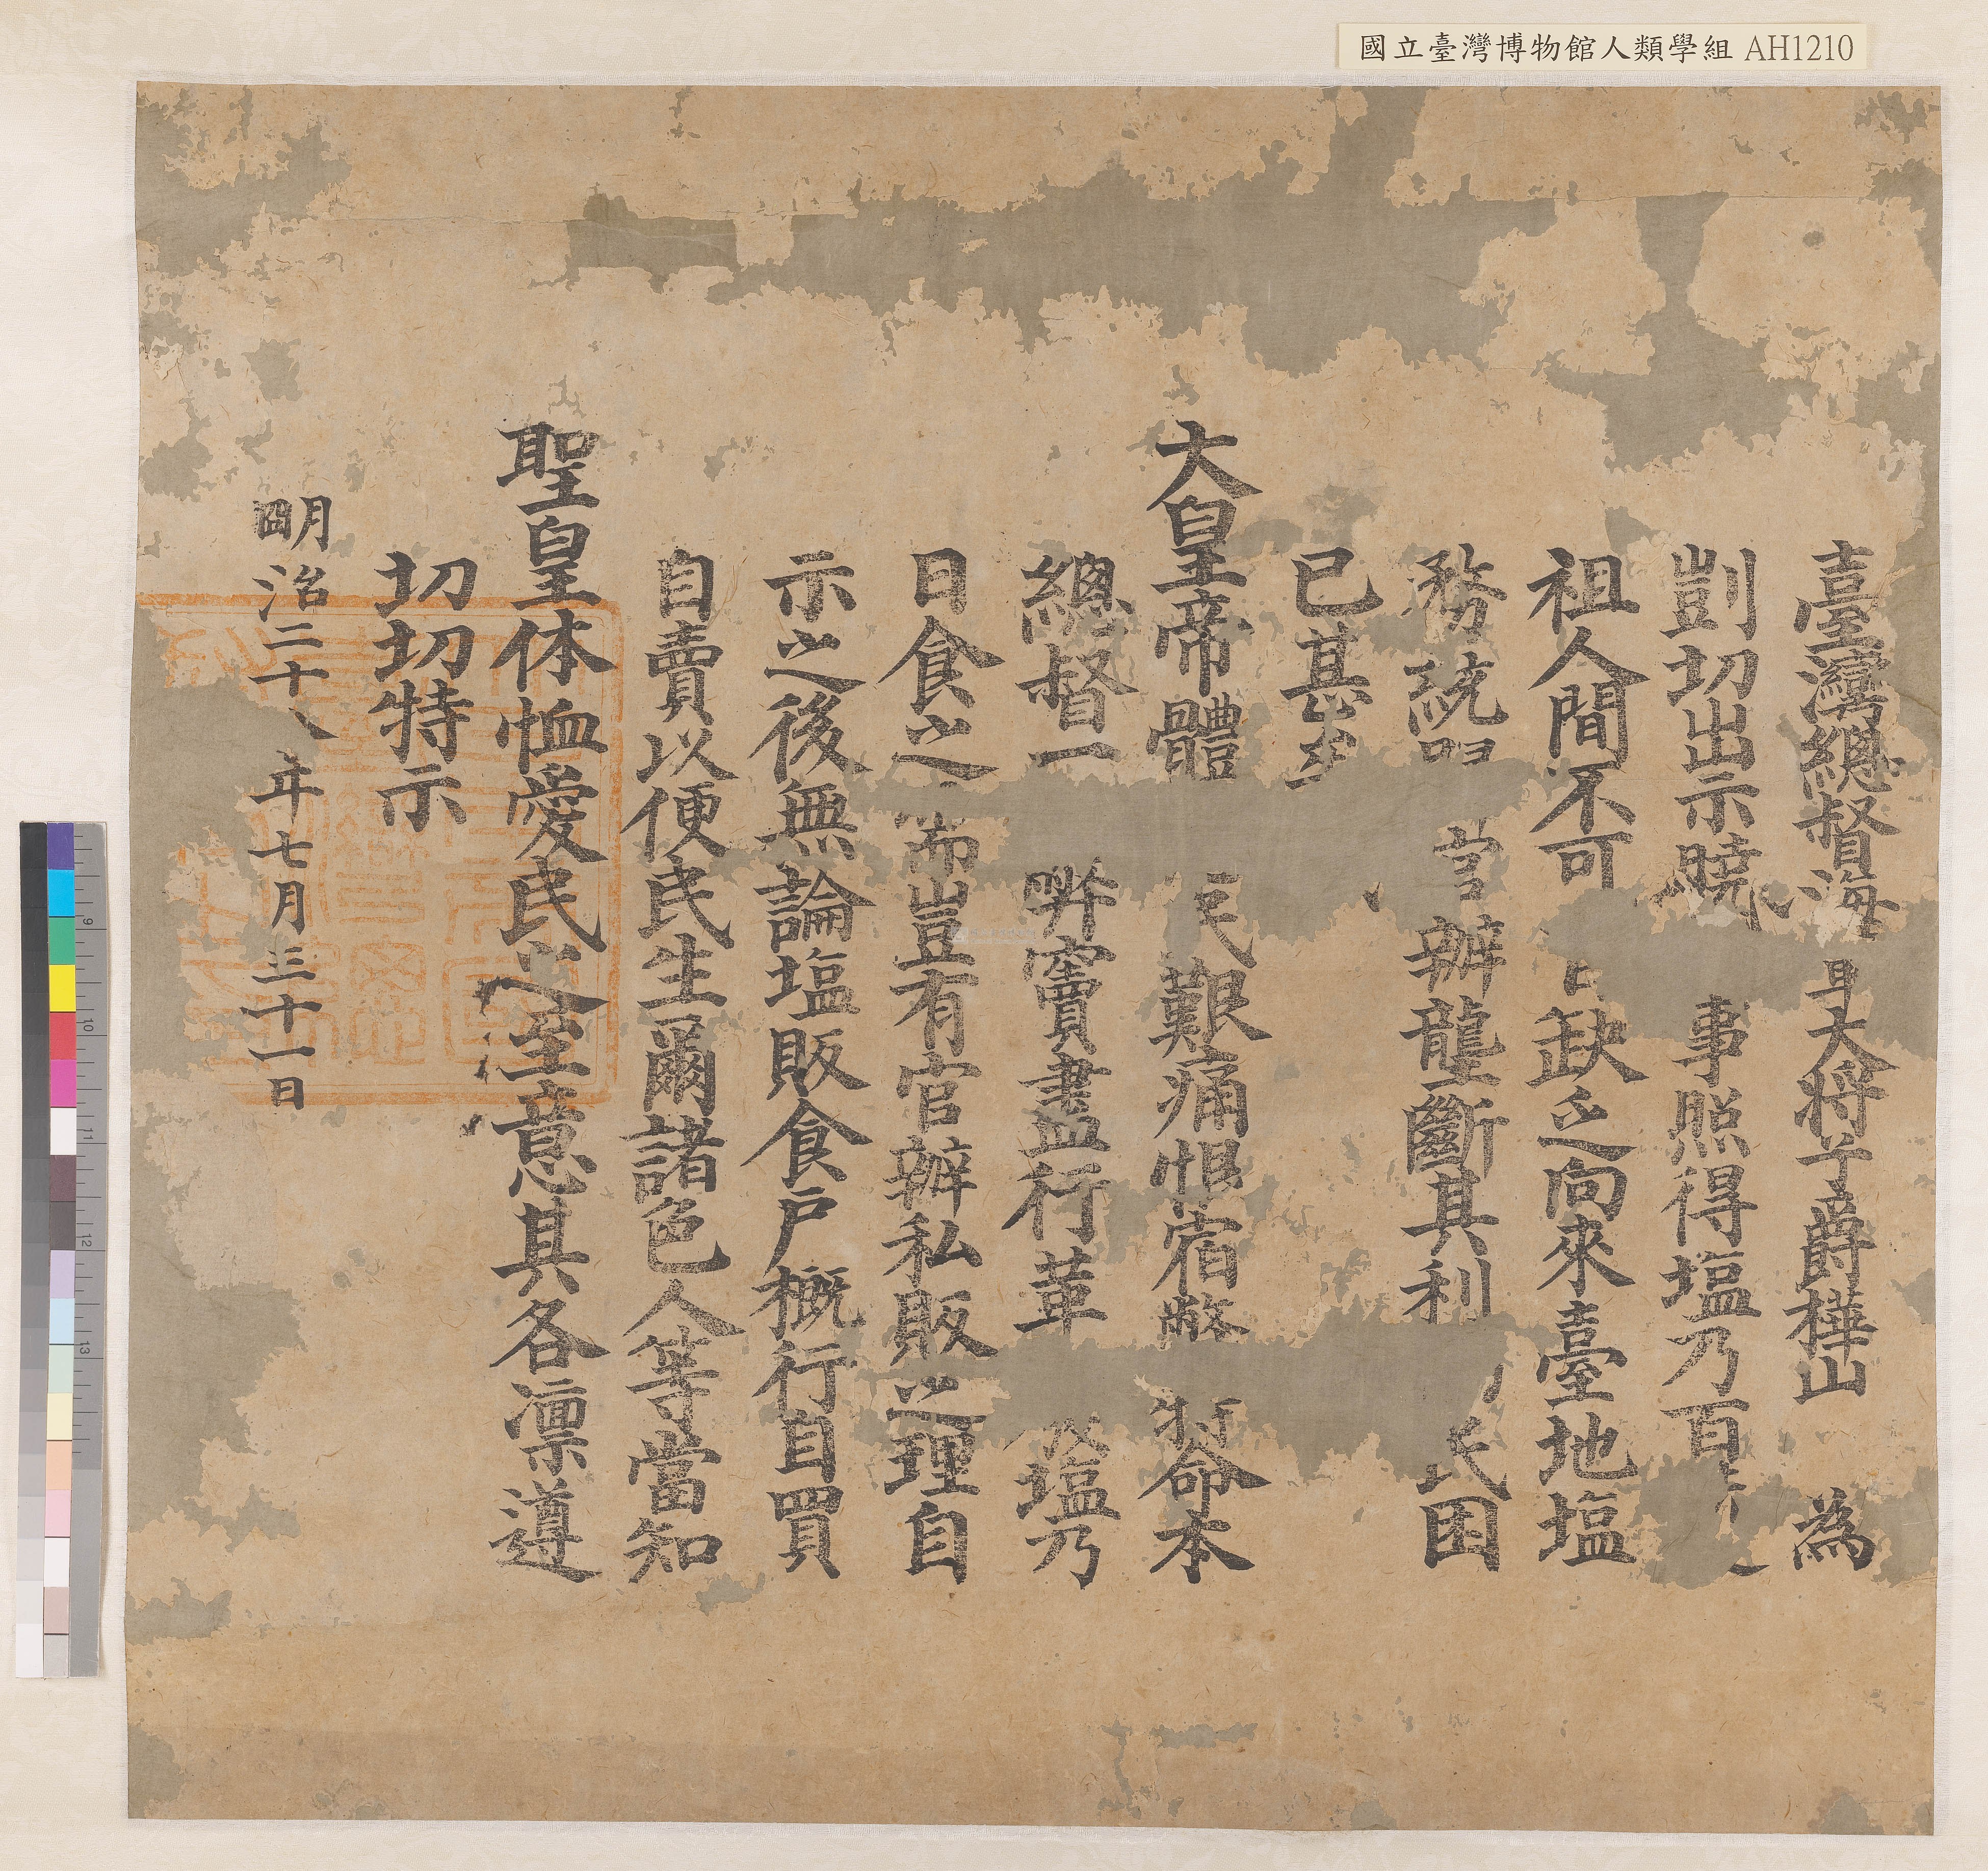 國立臺灣博物館人類學組 AH1210
臺灣總督海大將子爵樺山 為
剴切出示曉事照得塩乃百
祖人間不可缺乏向來臺地塩
務統官辦壟斷其利民困
已甚
大皇帝體民艱痛惧宿弊命本
總督一弊竇盡行革塩乃
日食之需豈有官辦私販之理自
示之後無論塩販食戶概行自買
自賣以便民生爾諸色人等當知
聖皇体恤愛民之至意其各凛遵
切切特示
明治二十八年七月三十一日
9
10
11
12
13